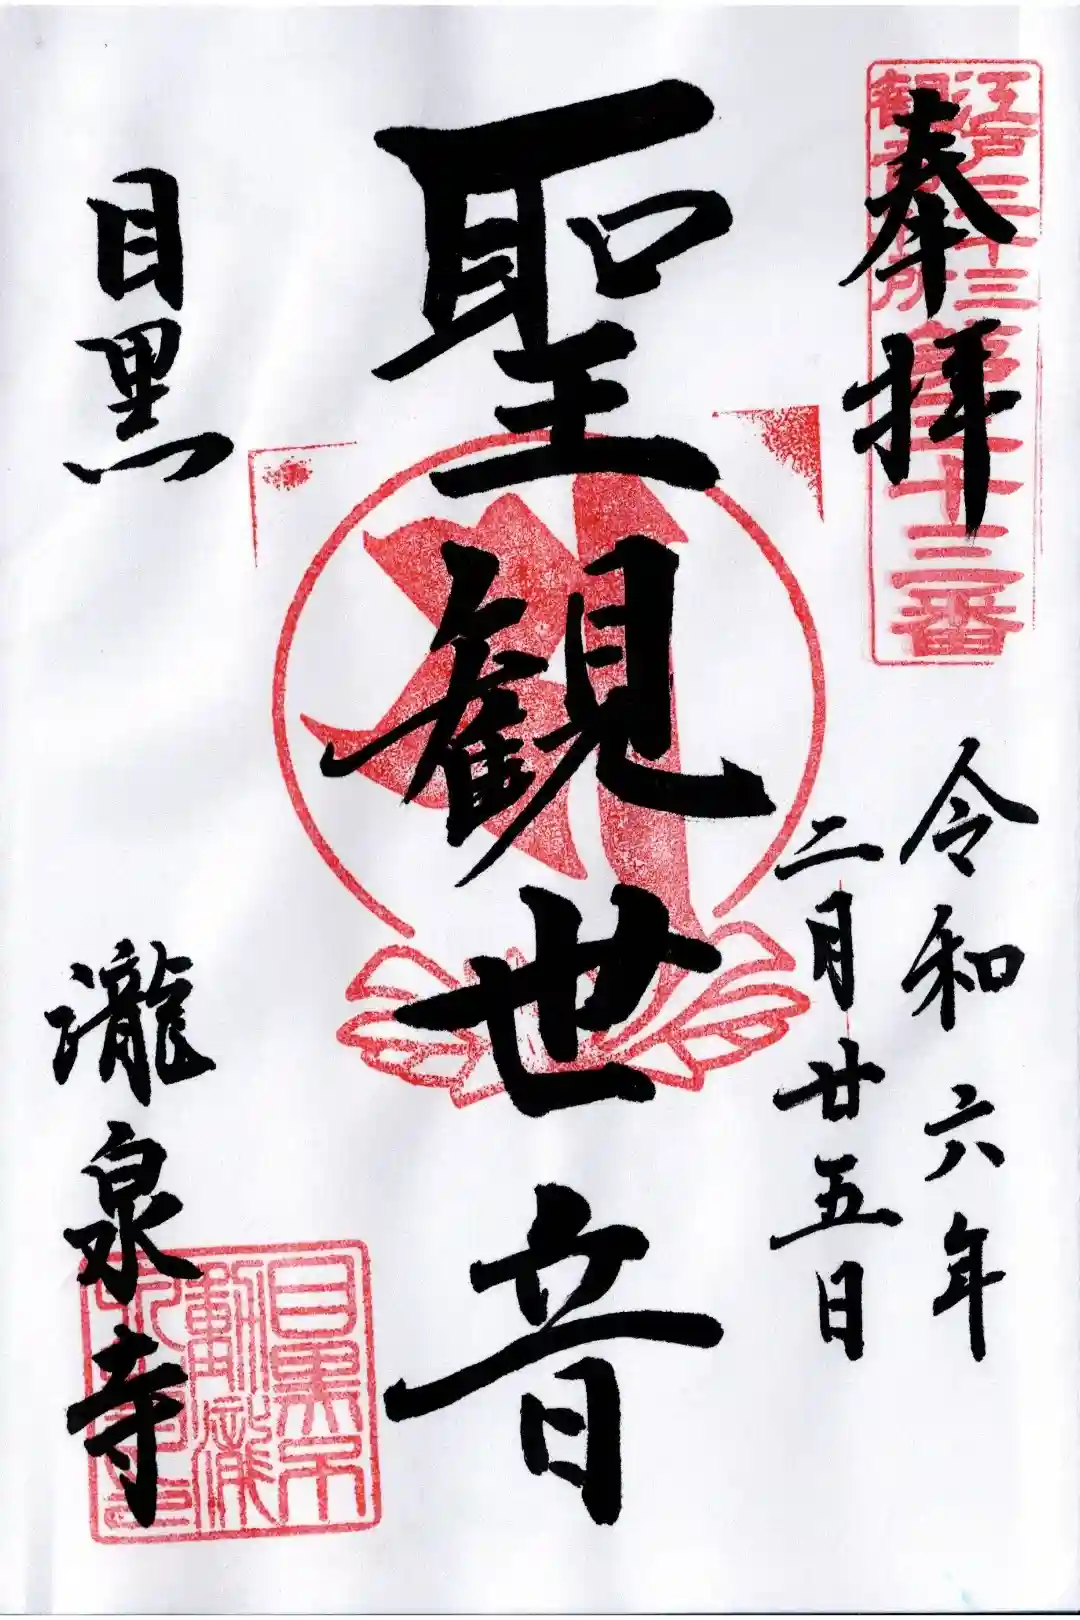 奉拝
江戸三十三
観音札所
第三十三番
令和六年
二月廿五日
聖観世音
目黒
瀧泉寺
目黒不
動瀧
泉寺印